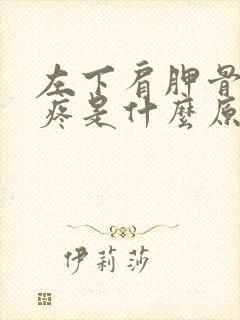 左下肩胛骨
疼是什麼原
伊莉莎